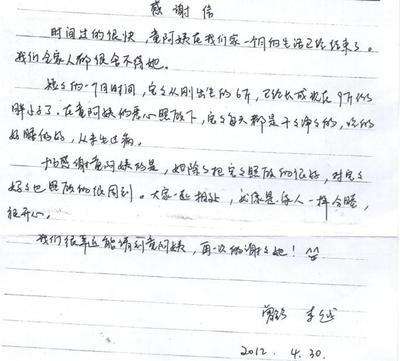 感谢信
时间过的很快，袁阿姨在我们家一个月的生活已经结束了。
我们全家人都很舍不得她。
短短的一个月时间，宝宝从刚出生的6斤，已经长成现在9斤的
胖小子了。在袁阿姨的悉心照顾下，宝宝每天都是干干净净的，吃的
好睡的好，从未生过病。
也感谢袁阿姨的是，她除了把宝宝照顾的很好，对宝
妈妈也照顾的很周到。大家一起相处，就像是家人一样合睦，
很开心。
我们很幸运能请到袁阿姨，再一次的谢谢她！^_^
李
2012. 4. 30.